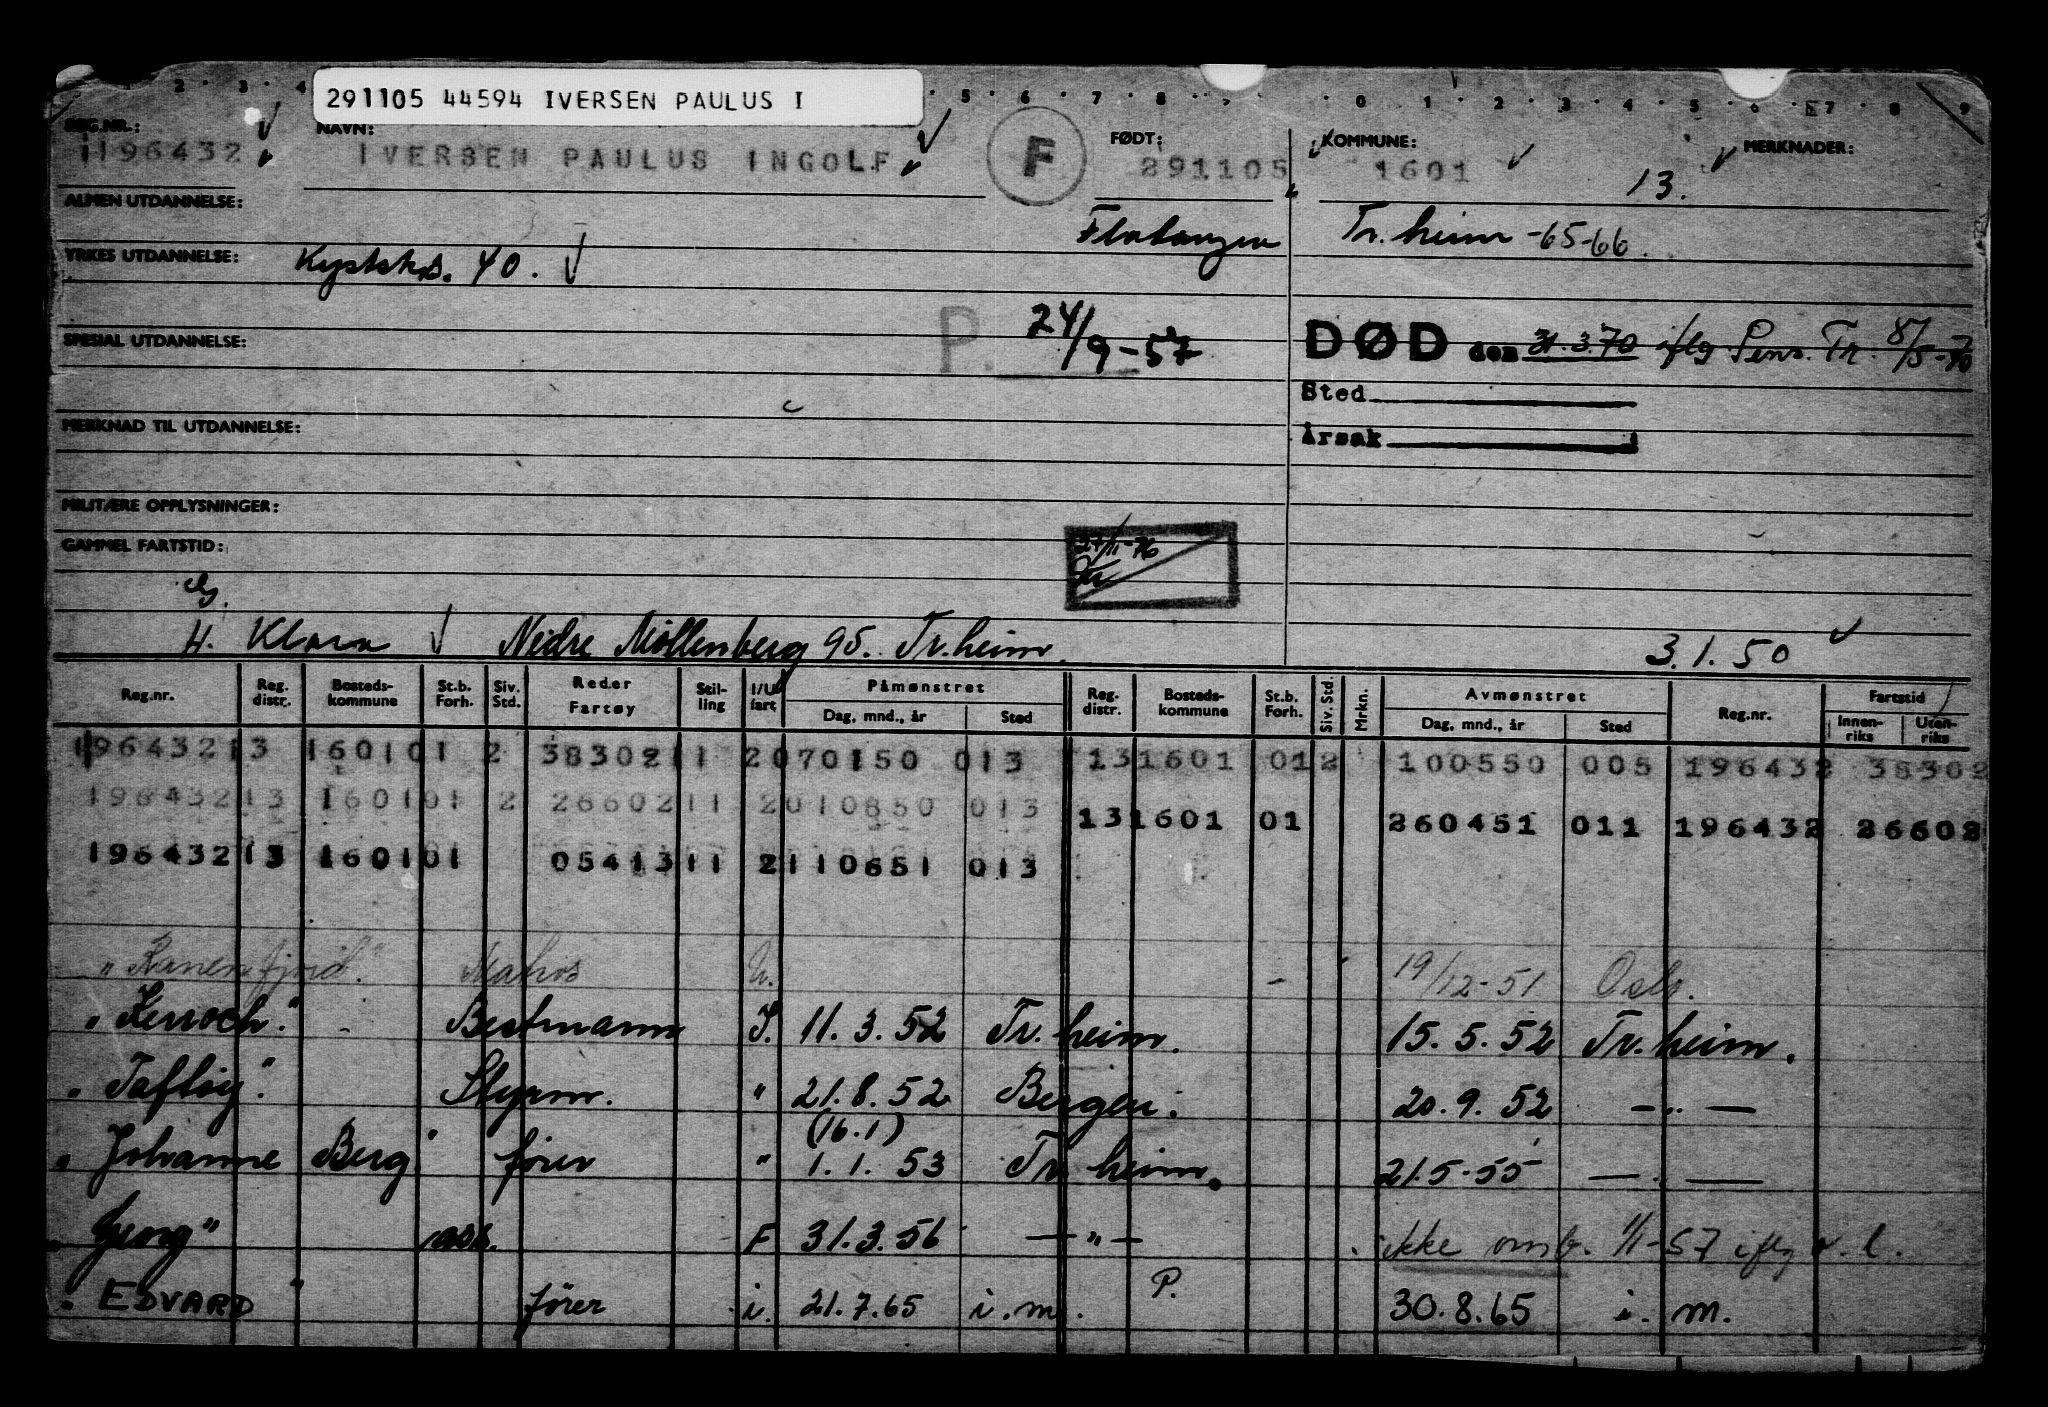 291105 44594 IVERSEN PAULUS I
REG.NR.: NAVN: FØDT: KOMMUNE: MERKNADER:
1196432 IVERSEN PAULUS INGOLF F 291105 1601 13.
ALMEN UTDANNELSE: Tr.heim -65-66.
YRKES UTDANNELSE: Kystsk.s. 40.
P. 24/9-57 DØD den 31.3.70 iflg Pens. Tr. 8/5-70
SPESIAL UTDANNELSE:
Sted
Årsak
MERKNAD TIL UTDANNELSE:
MILITÆRE OPPLYSNINGER:
GAMMEL FARTSTID: 27/11-76
H. Klara Nedre Möllenberg 95. Tr.heim. 3.1.50
Reg.nr. Reg. distr. Bosteds-kommune St.b. Forh. Siv. Std. Reder Fartøy Stil-ling I/U fart Påmønstret Dag, mnd., år Sted Reg. distr. Bosteds-kommune St.b. Forh. Siv. Std. Mrkn. Avmønstret Dag, mnd., år Sted Reg.nr. Fartstid Innen-riks Uten-riks
196432 13 1601 01 2 38302 11 2 070150 013 13 1601 01 2 100550 005 196432 38302
196432 13 1601 01 2 26602 11 2 010850 013 13 1601 01 260451 011 196432 26602
196432 13 1601 01 05413 11 2 110651 013
"Ranenfjord." Matros U. - 19/12-51 Oslo.
Bestmann I. 11.3.52 Tr.heim. 15.5.52 Tr.heim.
Styrm. " 21.8.52 Bergen. 20.9.52 —"—
(16.1)
"Johanne Berg" förer " 1.1.53 Tr.heim. 21.5.55 —"—
"Georg" F 31.3.56 —"— ikke omb. 1/1-57 iflg
"EDVARD" förer i. 21.7.65 i.m. P. 30.8.65 i. m.